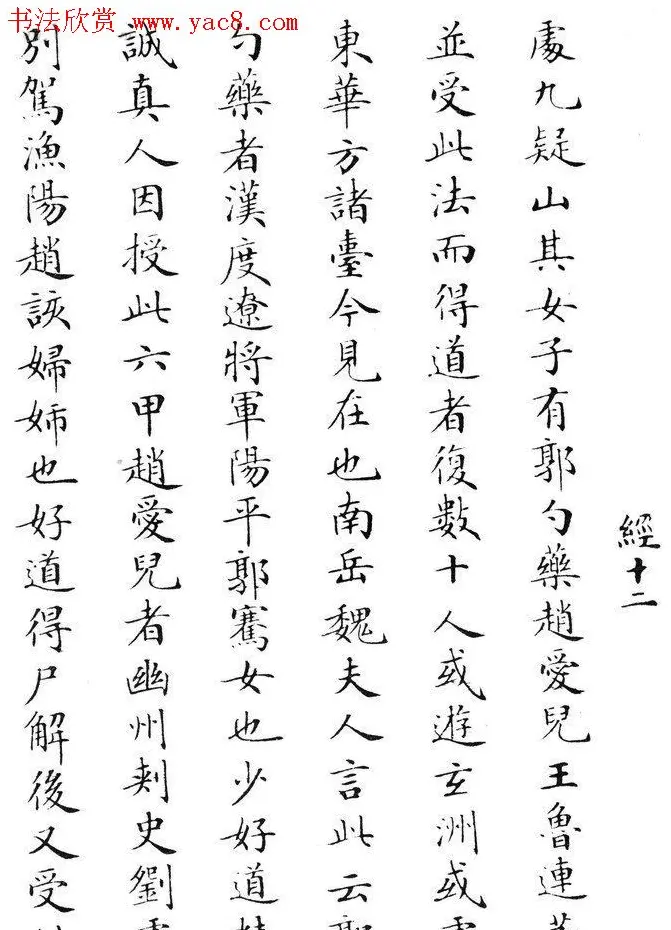 书法欣赏 www.yac8.com
經十二
處九疑山其女子有郭勺藥趙愛兒王魯連
並受此法而得道者復數十人或遊玄洲或
東華方諸臺今見在也南岳魏夫人言此云
勺藥者漢度遼將軍陽平郭騫女也少好道
誠真人因授此六甲趙愛兒者幽州刾史劉
別駕漁陽趙該婦姉也好道得尸解後又受